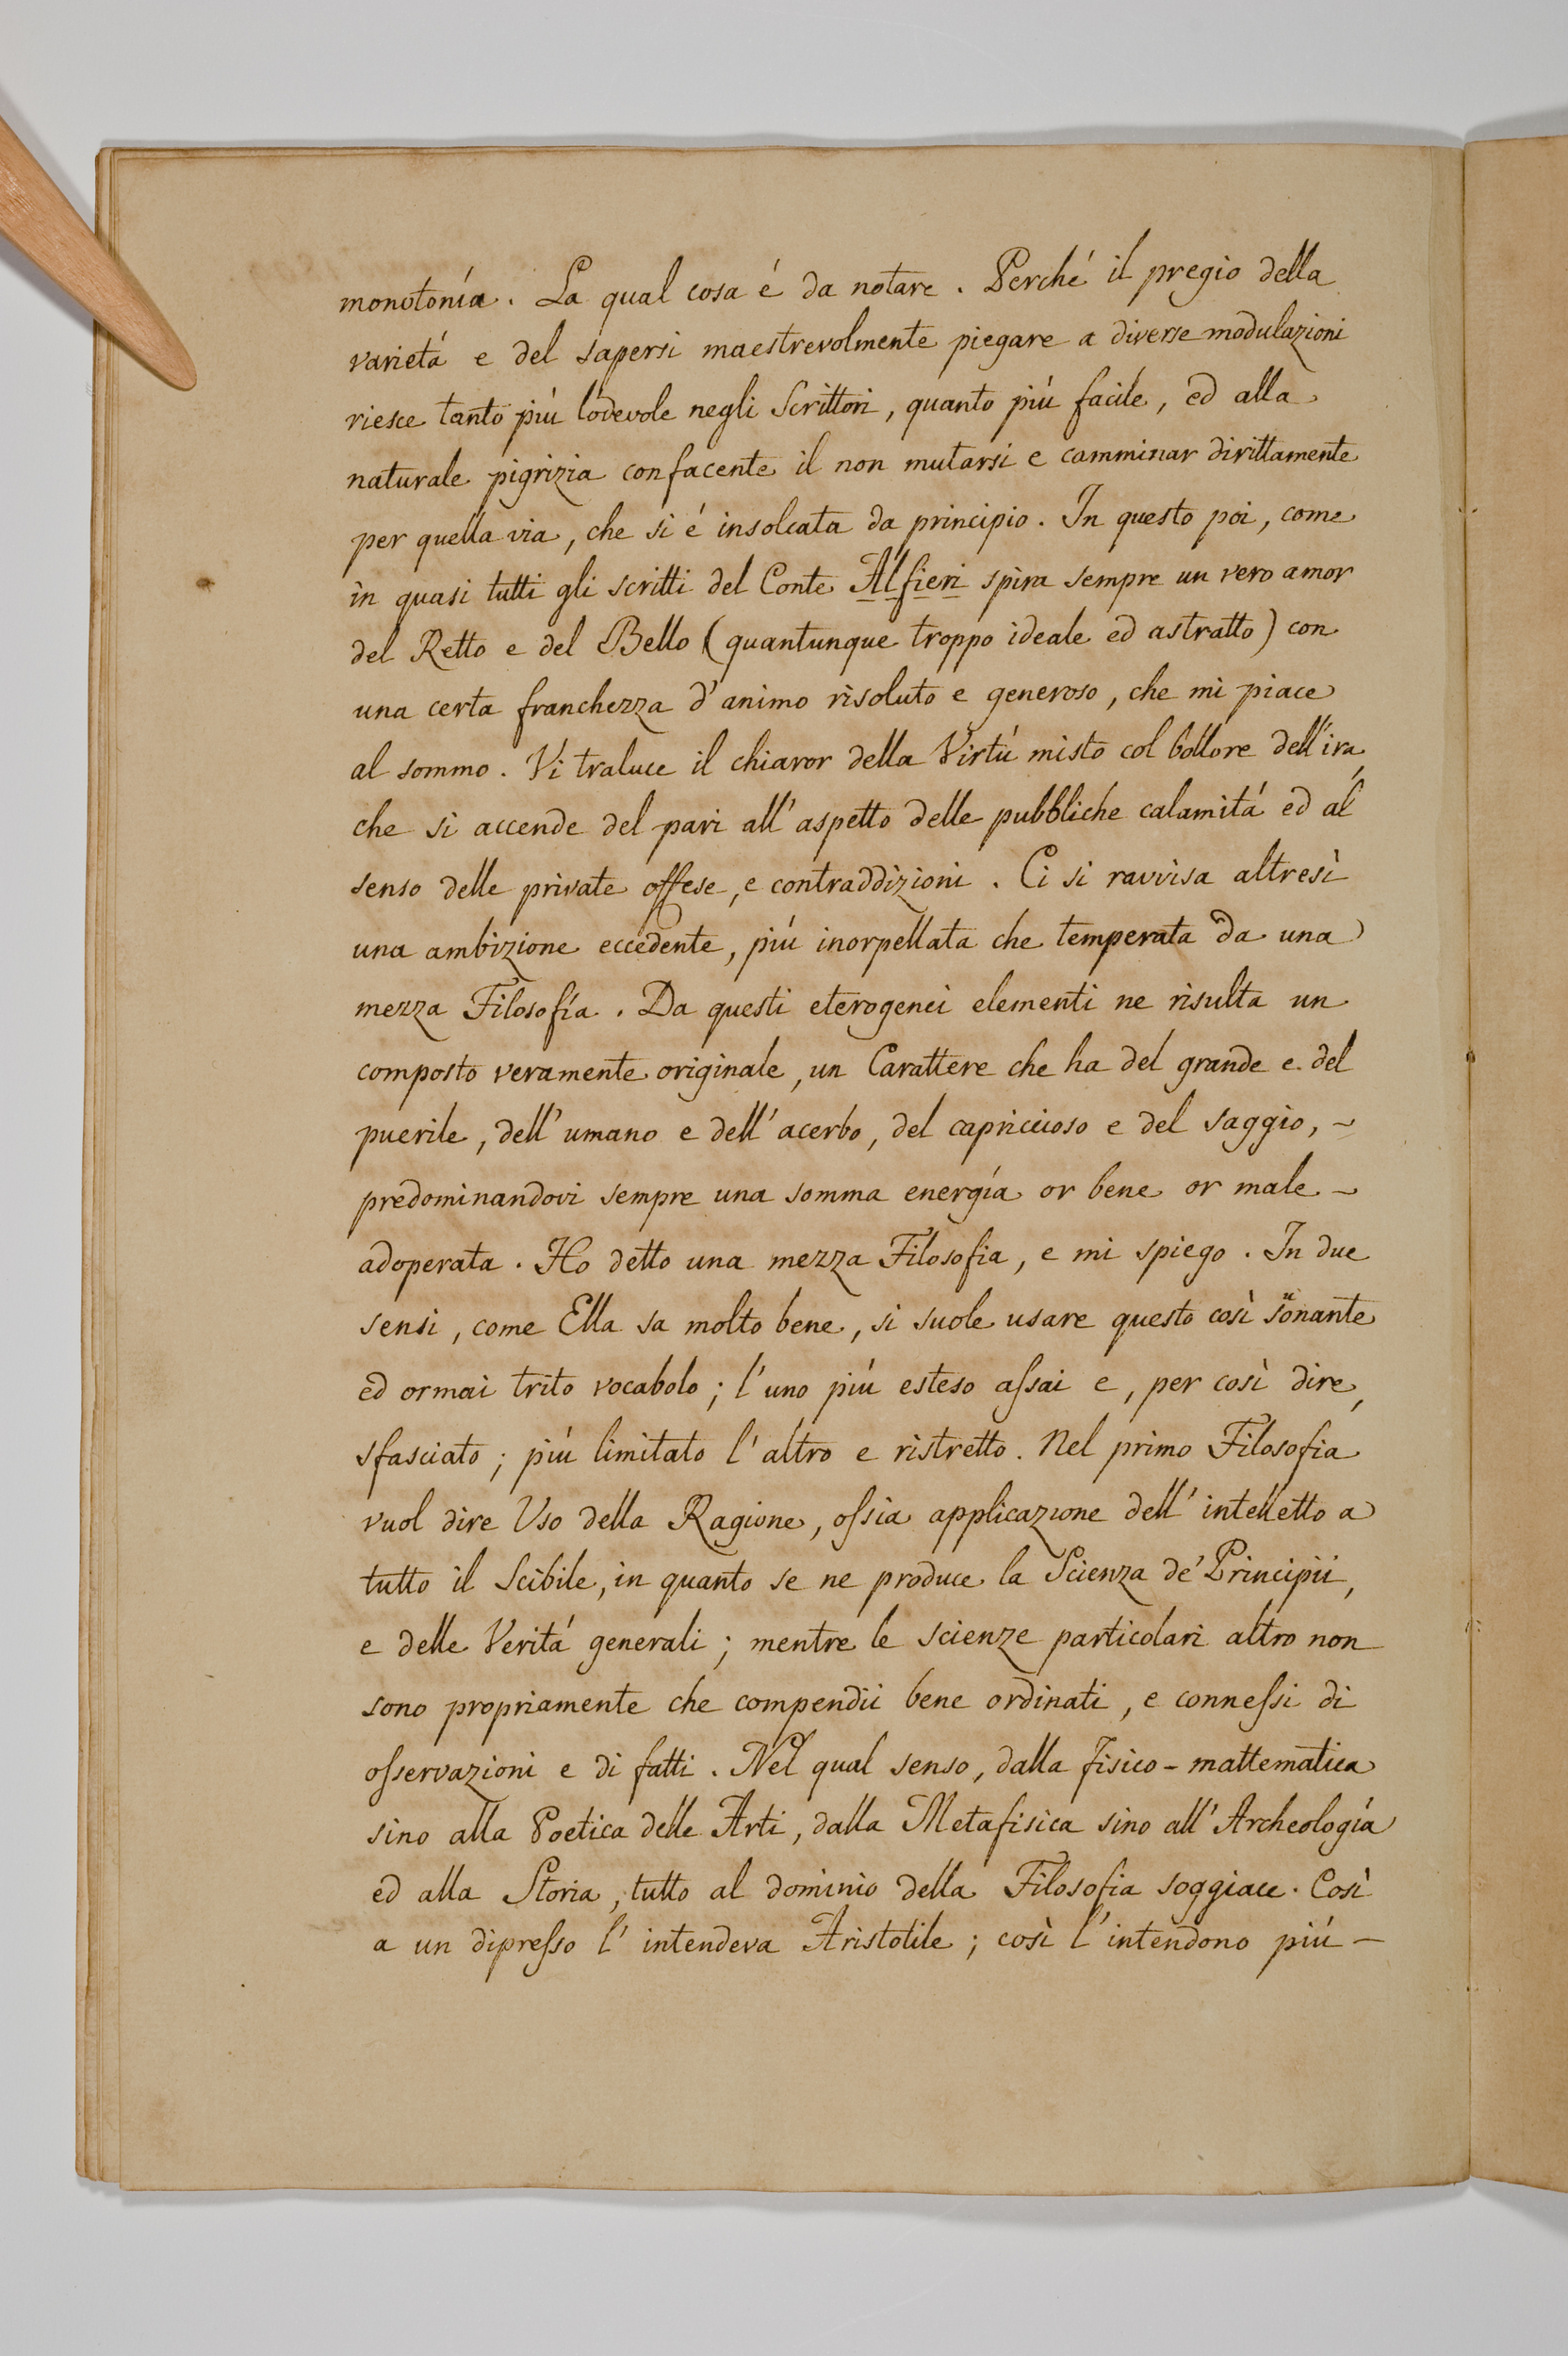 monotonía. La qual cosa é da notare. Perché il pregio della
varietá e del sapersi maestrevolmente piegare a diverse modulazioni
riesce tanto piú lodevole negli Scrittori, quanto piú facile, ed alla
naturale pigrizia confacente il non mutarsi e camminar dirittamente
per quella via, che si é insolcata da principio. In questo poi, come
in quasi tutti gli scritti del Conte Alfieri spira sempre un vero amor
del Retto e del Bello (quantunque troppo ideale ed astratto) con
una certa franchezza d'animo risoluto e generoso, che mi piace
al sommo. Vi traluce il chiaror della Virtú misto col bollore dell'ira,
che si accende del pari all'aspetto delle pubbliche calamitá ed al
senso delle private offese, e contraddizioni. Ci si ravvisa altresì
una ambizione eccedente, piú inorpellata che temperata da una
mezza Filosofía. Da questi eterogenei elementi ne risulta un
composto veramente originale, un Carattere che ha del grande e del
puerile, dell'umano e dell'acerbo, del capriccioso e del saggio, ~
predominandovi sempre una somma energía or bene or male ~
adoperata. Ho detto una mezza Filosofia, e mi spiego. In due
sensi, come Ella sa molto bene, si suole usare questo così sonante
ed ormai trito vocabolo; l'uno piú esteso aſsai e, per così dire,
sfasciato; piú limitato l'altro e ristretto. Nel primo Filosofia
vuol dire Uso della Ragione, oſsia applicazione dell'intelletto a
tutto il Scibile, in quanto se ne produce la Scienza de' Principii,
e delle Veritá generali; mentre le scienze particolari altro non
sono propriamente che compendii bene ordinati, e conneſsi di
oſservazioni e di fatti. Nel qual senso, dalla fisico-mattematica
sino alla Poetica delle Arti, dalla Metafisica sino all'Archeología
ed alla Storia, tutto al dominio della Filosofia soggiace. Così
a un dipreſso l'intendeva Aristotile; così l'intendono piú —